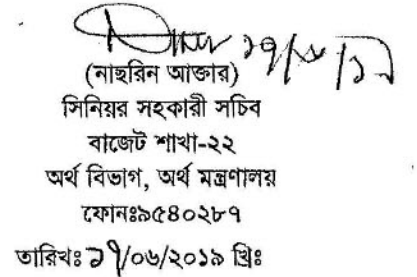 ১৭/৬/১৯
(নাছরিন আক্তার)
সিনিয়র সহকারী সচিব
বাজেট শাখা-২২
অর্থ বিভাগ, অর্থ মন্ত্রণালয়
ফোনঃ৯৫৪০২৮৭
তারিখঃ ১৭/০৬/২০১৯ খ্রিঃ